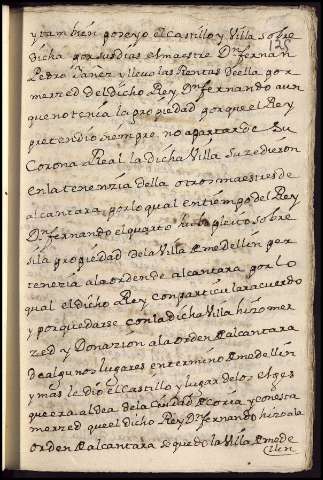 ytambien poseyo el Castillo y Villa sobre
125
dicha por sus dias el maestre Dn fernan
Pedro Yanez y lleuo las Rentas de ella por
merzed del dicho Rey Dn fernando aun
que no tenia la propiedad porque el Rey
pretendio siempre no apartar de Su
Corona Real la dicha Villa Suzedieron
en la tenenzia della otros maestres de
alcantara, por lo qual en tiempo del Rey
Dn fernando el quarto hubo pleito, sobre
si la propiedad de la Villa de medellin per
tenezia a la orden de alcantara por lo
qual el dicho Rey con particular acuerdo
y por quedarse con la dicha Villa hizo mer
zed y Donazion a la orden de alcantara
de algunos lugares en termino de medellin
y mas le dio el Castillo y lugar de los
que era aldea de la Ciudad de Coria y con esta
merzed que el dicho Rey Dn fernando hizo a la
orden de alcantara se quedo la Villa de mede
llin